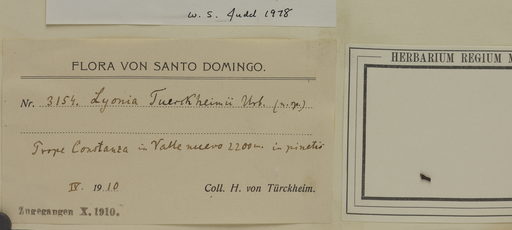 W. S. Judd 1978
FLORA VON SANTO DOMINGO.
Nr. 3154. Lyonia Tuerckheimii Urb. (n. sp.)
Prope Constanza in Valle nuevo 2200 m. in pinetis
IV. 1910 Coll. H. von Türckheim.
Zugegangen X. 1910.
HERBARIUM REGIUM M